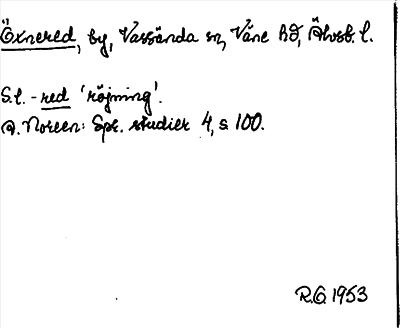 Öxnered, by, Vassända sn, Väne hd, Älvsb. l.
S.l. -red 'röjning'.
A. Noreen: Spr. studier 4, s 100.
R.O. 1953